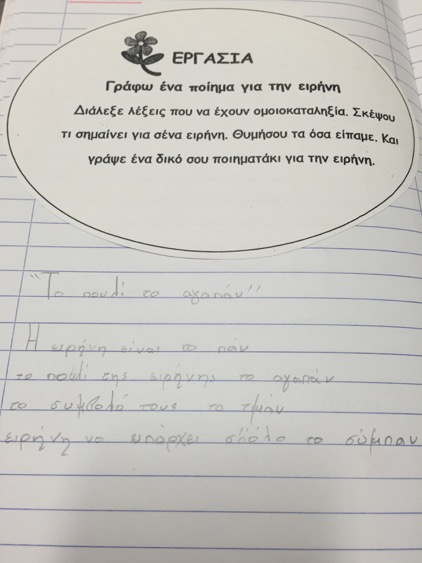 ΕΡΓΑΣΙΑ
Γράφω ένα ποίημα για την ειρήνη
Διάλεξε λέξεις που να έχουν ομοιοκαταληξία. Σκέψου
τι σημαίνει για σένα ειρήνη. Θυμήσου τα όσα είπαμε. Και
γράψε ένα δικό σου ποιηματάκι για την ειρήνη.
"Το πουλί το αγαπάν"
Η ειρήνη είναι το πάν
το πουλί της ειρήνης το αγαπάν
το συμβολό τους το τιμάν
ειρήνη να υπάρχει σ'όλο το σύμπαν